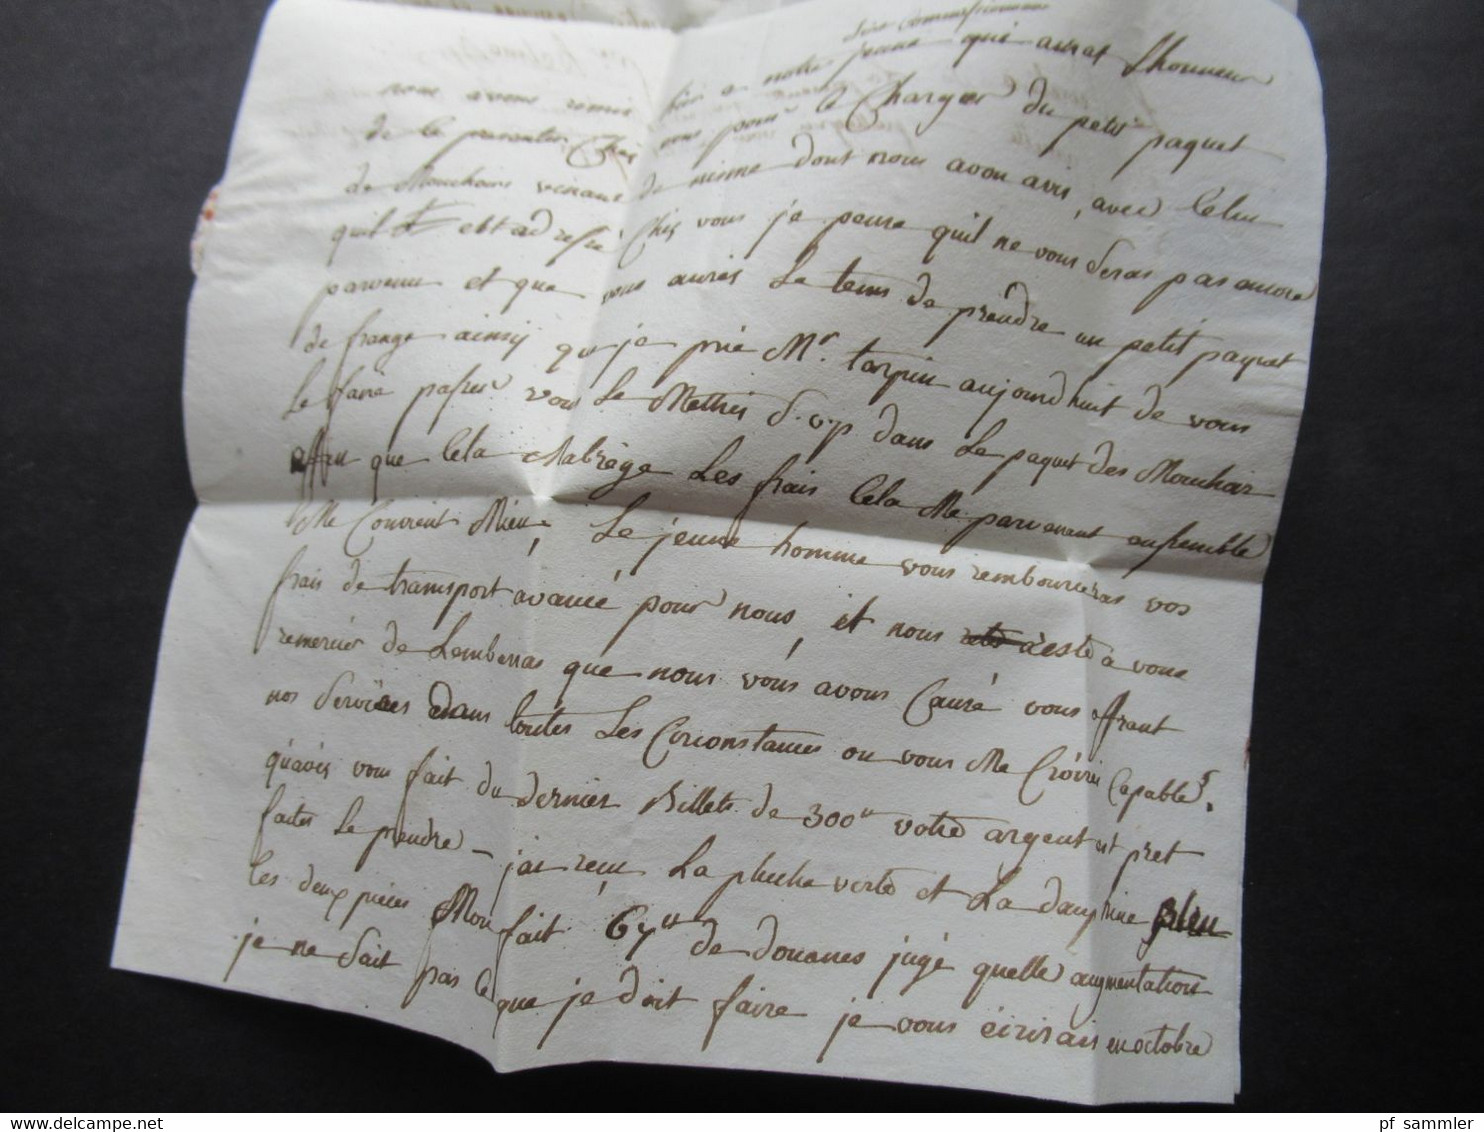 nous avons remis hier a nottre jeune qui aurat Lhonneur
de le presenter Chez vous pour le Charger du petit paquet
de Mouchoirs venant de nisme dont nous avon avis, avec Celui
quil est adressé Chez vous je pense quil ne vous Seras pas ancore
parvenu et que vous aurés Le tems de prendre un petit paquet
de frange ainsy que je prie Mr. Torpin aujourdhuit de vous
Le faire passer vous Le Mettres S.v.p dans Le paquet des Mouchoir
affin que Cela Mabrege Les frais Cela Me parvenant ensemble
Me Convient Mieu, Le jeune homme vous rembourceras vos
frais de transport avancé pour nous, et nous reste a vous
remercier de Lembarras que nous vous avons Causé vous offrant
nos Services dans toutes Les Circonstances ou vous Me Croirés Capables.
quavés vous fait du dernier Billets de 300 votre argent est pret
faites Le prendre – jai reçu La pluche verte et La dauphine bleu
Ces deux pieces Mon fait 67 de douanes jugé quelle augmentation
je ne Sait pas Ce que je doit faire je vous écrirais en octobre